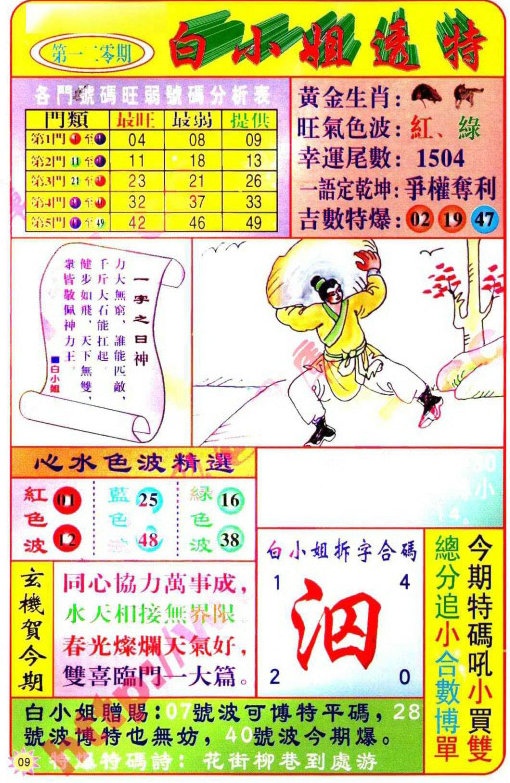 第一二零期
白小姐透特
各門號碼旺弱號碼分析表
門類 最旺 最弱 提供
第1門 至 04 08 09
第2門 11 至 11 18 13
第3門 21 至 23 21 26
第4門 至 32 37 33
第5門 至 49 42 46 49
黃金生肖：
旺氣色波：紅、綠
幸運尾數：1504
一語定乾坤：爭權奪利
吉數特爆：02 19 47
一字之曰神
力大無窮，誰能匹敵，
千斤大石能扛起。
健步如飛，天下無雙，
衆皆敬佩神力王。
■白小姐
心水色波精選
紅色波 01 12
藍色波 25 48
綠色波 16 38
白小姐拆字合碼
1 4
泅
2 0
玄機賀今期
同心協力萬事成，
水天相接無界限
春光燦爛天氣好，
雙喜臨門一大篇。
今期特碼吼小買雙
總分追小合數博單
白小姐贈賜：07號波可博特平碼，28
號波博特也無妨，40號波今期爆。
特爆特碼詩：花街柳巷到處游
09